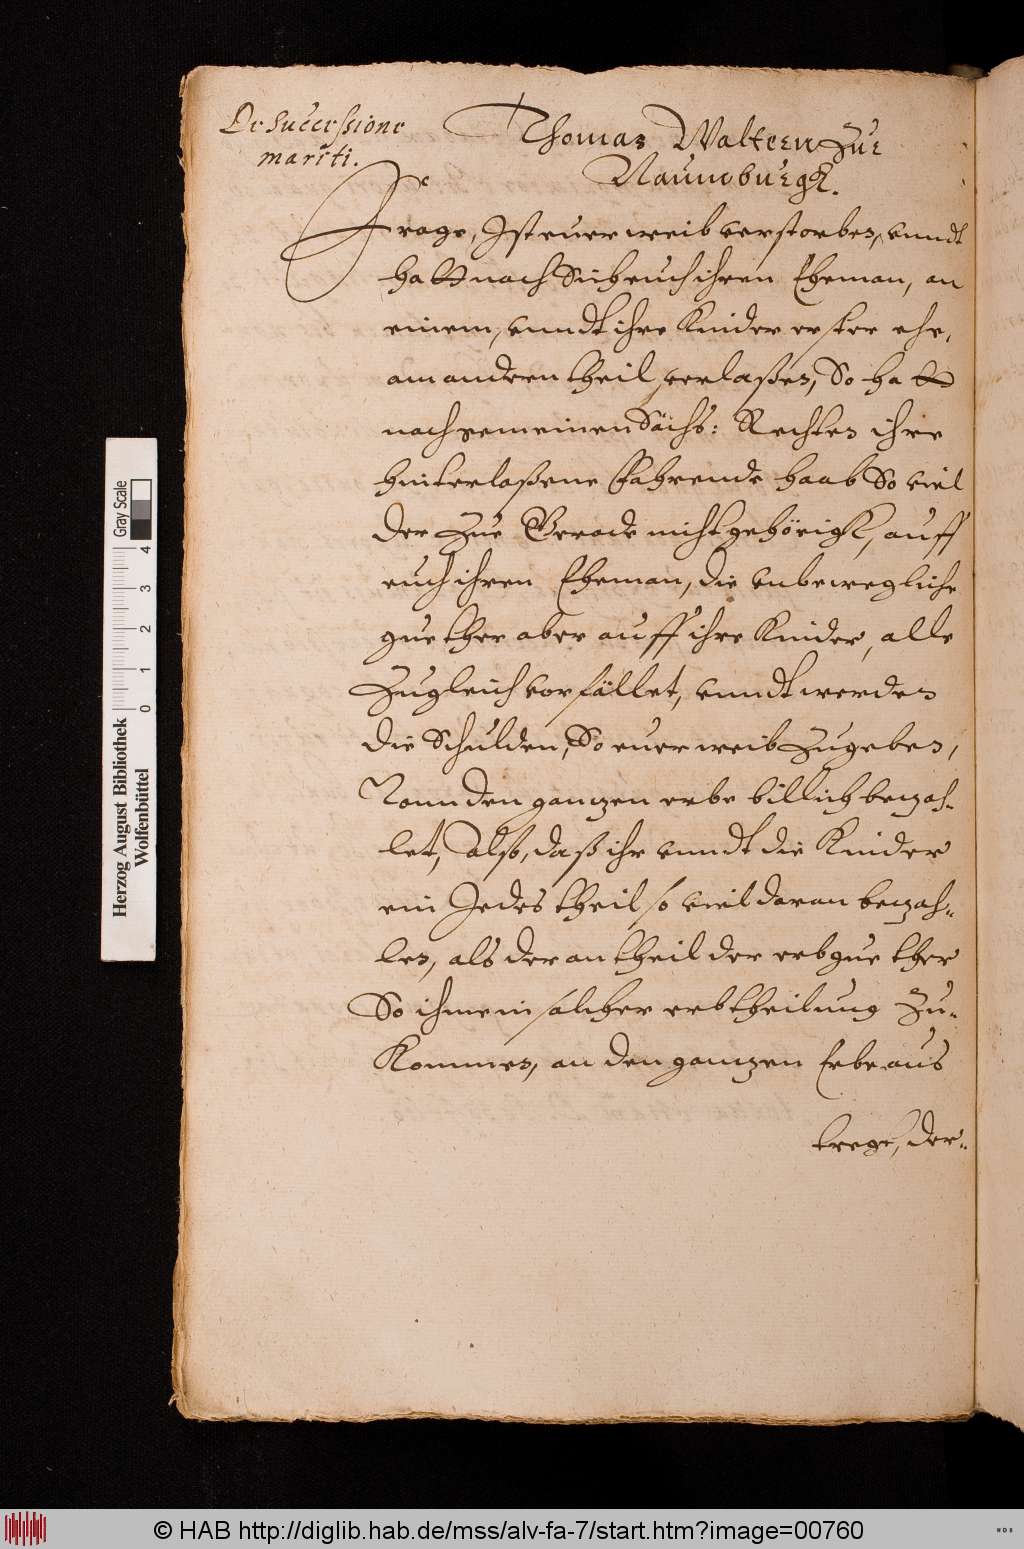 De successione
mariti.
Thomas Waltern zue
Naumburgk.
Frage, Ist euer weib verstorben, vnndt
hatt nach sich euch ihren Eheman, an
einem, vnndt ihre Kinder erster ehe,
am andern theil verlaßen, So hatt
nach gemeinen Sächs: Rechten ihre
hinterlaßene Fahrende haab So viel
der zue Gerade nicht gehörigk, auff
euch ihren Eheman, die vnbewegliche
guether aber auff ihre Kinder, alle
zugleich vorfället, vnndt werden
die Schulden, So euer weib zugeben,
Vonn den ganzen erbe billich bezah-
let, Also, daß ihr vnndt die Kinder
ein Jedes theil so viel daran bezah-
len, als der antheil der erbguether
So ihme in solcher erbtheilung zu-
kommen, an den ganzen Erbe aus
trege, der-
Herzog August Bibliothek
Wolfenbüttel
0 1 2 3 4
Gray Scale
© HAB http://diglib.hab.de/mss/alv-fa-7/start.htm?image=00760